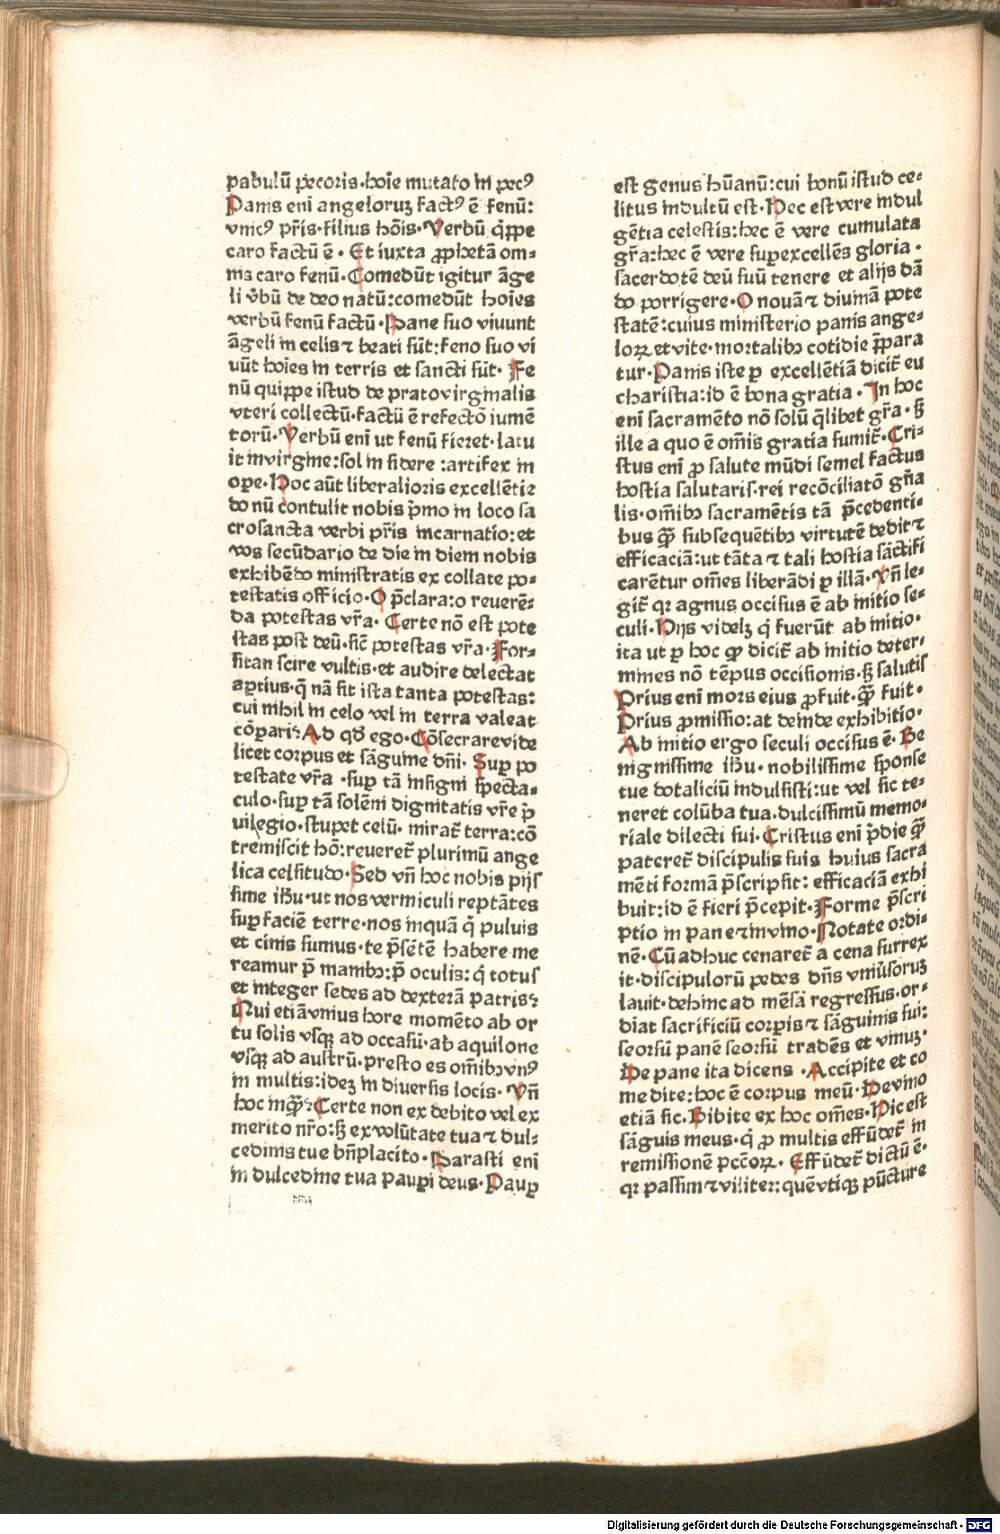 pabulū pecoris·hoīe mutato in pecꝰ
Panis enī angeloruꝫ factꝰ ē fenū:
vnicꝰ pr̄is·filius hōis·Verbū qͥppe
caro factū ē· Et iuxta ꝓphetā om⸗
nis caro fenū·Comedūt igitur āge
li v̄bū de deo natū:comedūt hoīes
verbū fenū factū·Pane suo viuunt
āgeli in celis ⁊ beati sūt:feno suo vi
uūt hoīes in terris et sancti sūt· Fe
nū quippe istud de prato virginalis
vteri collectū·factū ē refectō iumē
torū·Verbū enī ut fenū fieret·latu
it in virgine:sol in sidere :artifex in
ope·Hoc aūt liberalioris excellētie
donū contulit nobis pͥmo in loco sa
crosancta verbi pr̄is incarnatio:et
vos secūdario de die in diem nobis
exhibēdo ministratis ex collate po⸗
testatis officio·O p̄clara:o reuerē⸗
da potestas vr̄a· Certe nō est pote
stas post deū·sic̄ potestas vr̄a·For⸗
sitan scire vultis·et audire delectat
aptius·q̄ nā sit ista tanta potestas:
cui nihil in celo vel in terra valeat
cōpari?Ad qd̄ ego·Cōsecrare vide
licet corpus et sāguine dn̄i· Suꝑ po
testate vr̄a ·suꝑ tā insigni specta⸗
culo·suꝑ tā solēni dignitatis vr̄e pͥ
uilegio·stupet celū· mirat̄ terra:cō
tremiscit hō:reueret̄ plurimū ange
lica celsitudo·Sed vn̄ hoc nobis pijs
sime ihu·ut nos vermiculi reptātes
suꝑ faciē terre·nos inquā qͥ puluis
et cinis sumus·te p̄sētē habere me
reamur p̄ manibꝫ:p̄ oculis:qͥ totus
et integer sedes ad dexterā patris?
Qui etiā vnius hore momēto ab or
tu solis vsqꝫ ad occasū·ab aquilone
vsqꝫ ad austrū·presto es oīibꝫ vnꝰ
in multis:ideꝫ in diuersis locis· Vn̄
hoc inqͣꝫ?Certe non ex debito vel ex
merito nr̄o:sꝫ ex volūtate tua ⁊ dul⸗
cedinis tue bn̄placito·Parasti enī
in dulcedine tua paupi deus·Pauꝑ
est genus hūanū:cui bonū istud ce⸗
litus indultū est·Hec est vere indul
gētia celestis:hec ē vere cumulata
gr̄a:hec ē vere suꝑexcellēs gloria ·
sacerdotē deū suū tenere et alijs dā
do porrigere·O nouā ⁊ diuinā pote
statē:cuius ministerio panis ange⸗
loꝝ et vite·mortalibꝫ cotidie p̄para
tur·Panis iste ꝑ excellētiā dicit̄ eu
charistia:id ē bona gratia ·In hoc
enī sacramēto nō solū qͥlibet gr̄a·sꝫ
ille a quo ē om̄is gratia sumit̄·Cri⸗
stus enī ꝓ salute mūdi semel factus
hostia salutaris·rei recōciliatō gn̄a
lis·om̄ibꝫ sacramētis tā p̄cedenti⸗
bus qͣꝫ subsequētibꝫ virtutē dedit ⁊
efficaciā:ut tāta ⁊ tali hostia sāctifi
carētur om̄es liberādi ꝑ illā·Vn̄ le⸗
git̄ qꝛ agnus occisus ē ab initio se⸗
culi·Hijs videlꝫ qͥ fuerūt ab initio·
ita ut ꝑ hoc ꝙ dicit̄ ab initio deter⸗
mines nō tēpus occisionis·sꝫ salutis
Prius enī mors eius ꝓfuit·qͣꝫ fuit·
Prius ꝓmissio:at deinde exhibitio·
Ab initio ergo seculi occisus ē· Be
nignissime ihu· nobilissime sponse
tue dotaliciū indulsisti:ut vel sic te⸗
neret colūba tua·dulcissimū memo⸗
riale dilecti sui·Cristus enī pͥdie qͣꝫ
pateret̄ discipulis suis huius sacra
mēti formā p̄scripsit: efficaciā exhi
buit:id ē fieri p̄cepit·Forme p̄scri
ptio in pane ⁊ in vino·Notate ordi⸗
nē·Cū adhuc cenaret̄ a cena surrex
it·discipulorū pedes dn̄s vniūsoruꝫ
lauit·dehinc ad mēsā regressus·or⸗
diat sacrificiū corpis ⁊ sāguinis sui:
seorsū panē seorsū tradēs et vinuꝫ·
De pane ita dicens ·Accipite et co
medite:hoc ē corpus meū·De vino
etiā sic·Bibite ex hoc om̄es·Hic est
sāguis meus·qͥ ꝓ multis effūdet̄ in
remissionē pcc̄oꝝ· Effūdet̄ dictū ē·
qꝛ passim ⁊ viliter:quē vtiqꝫ pūcture
Digitalisierung gefördert durch die Deutsche Forschungsgemeinschaft · DFG